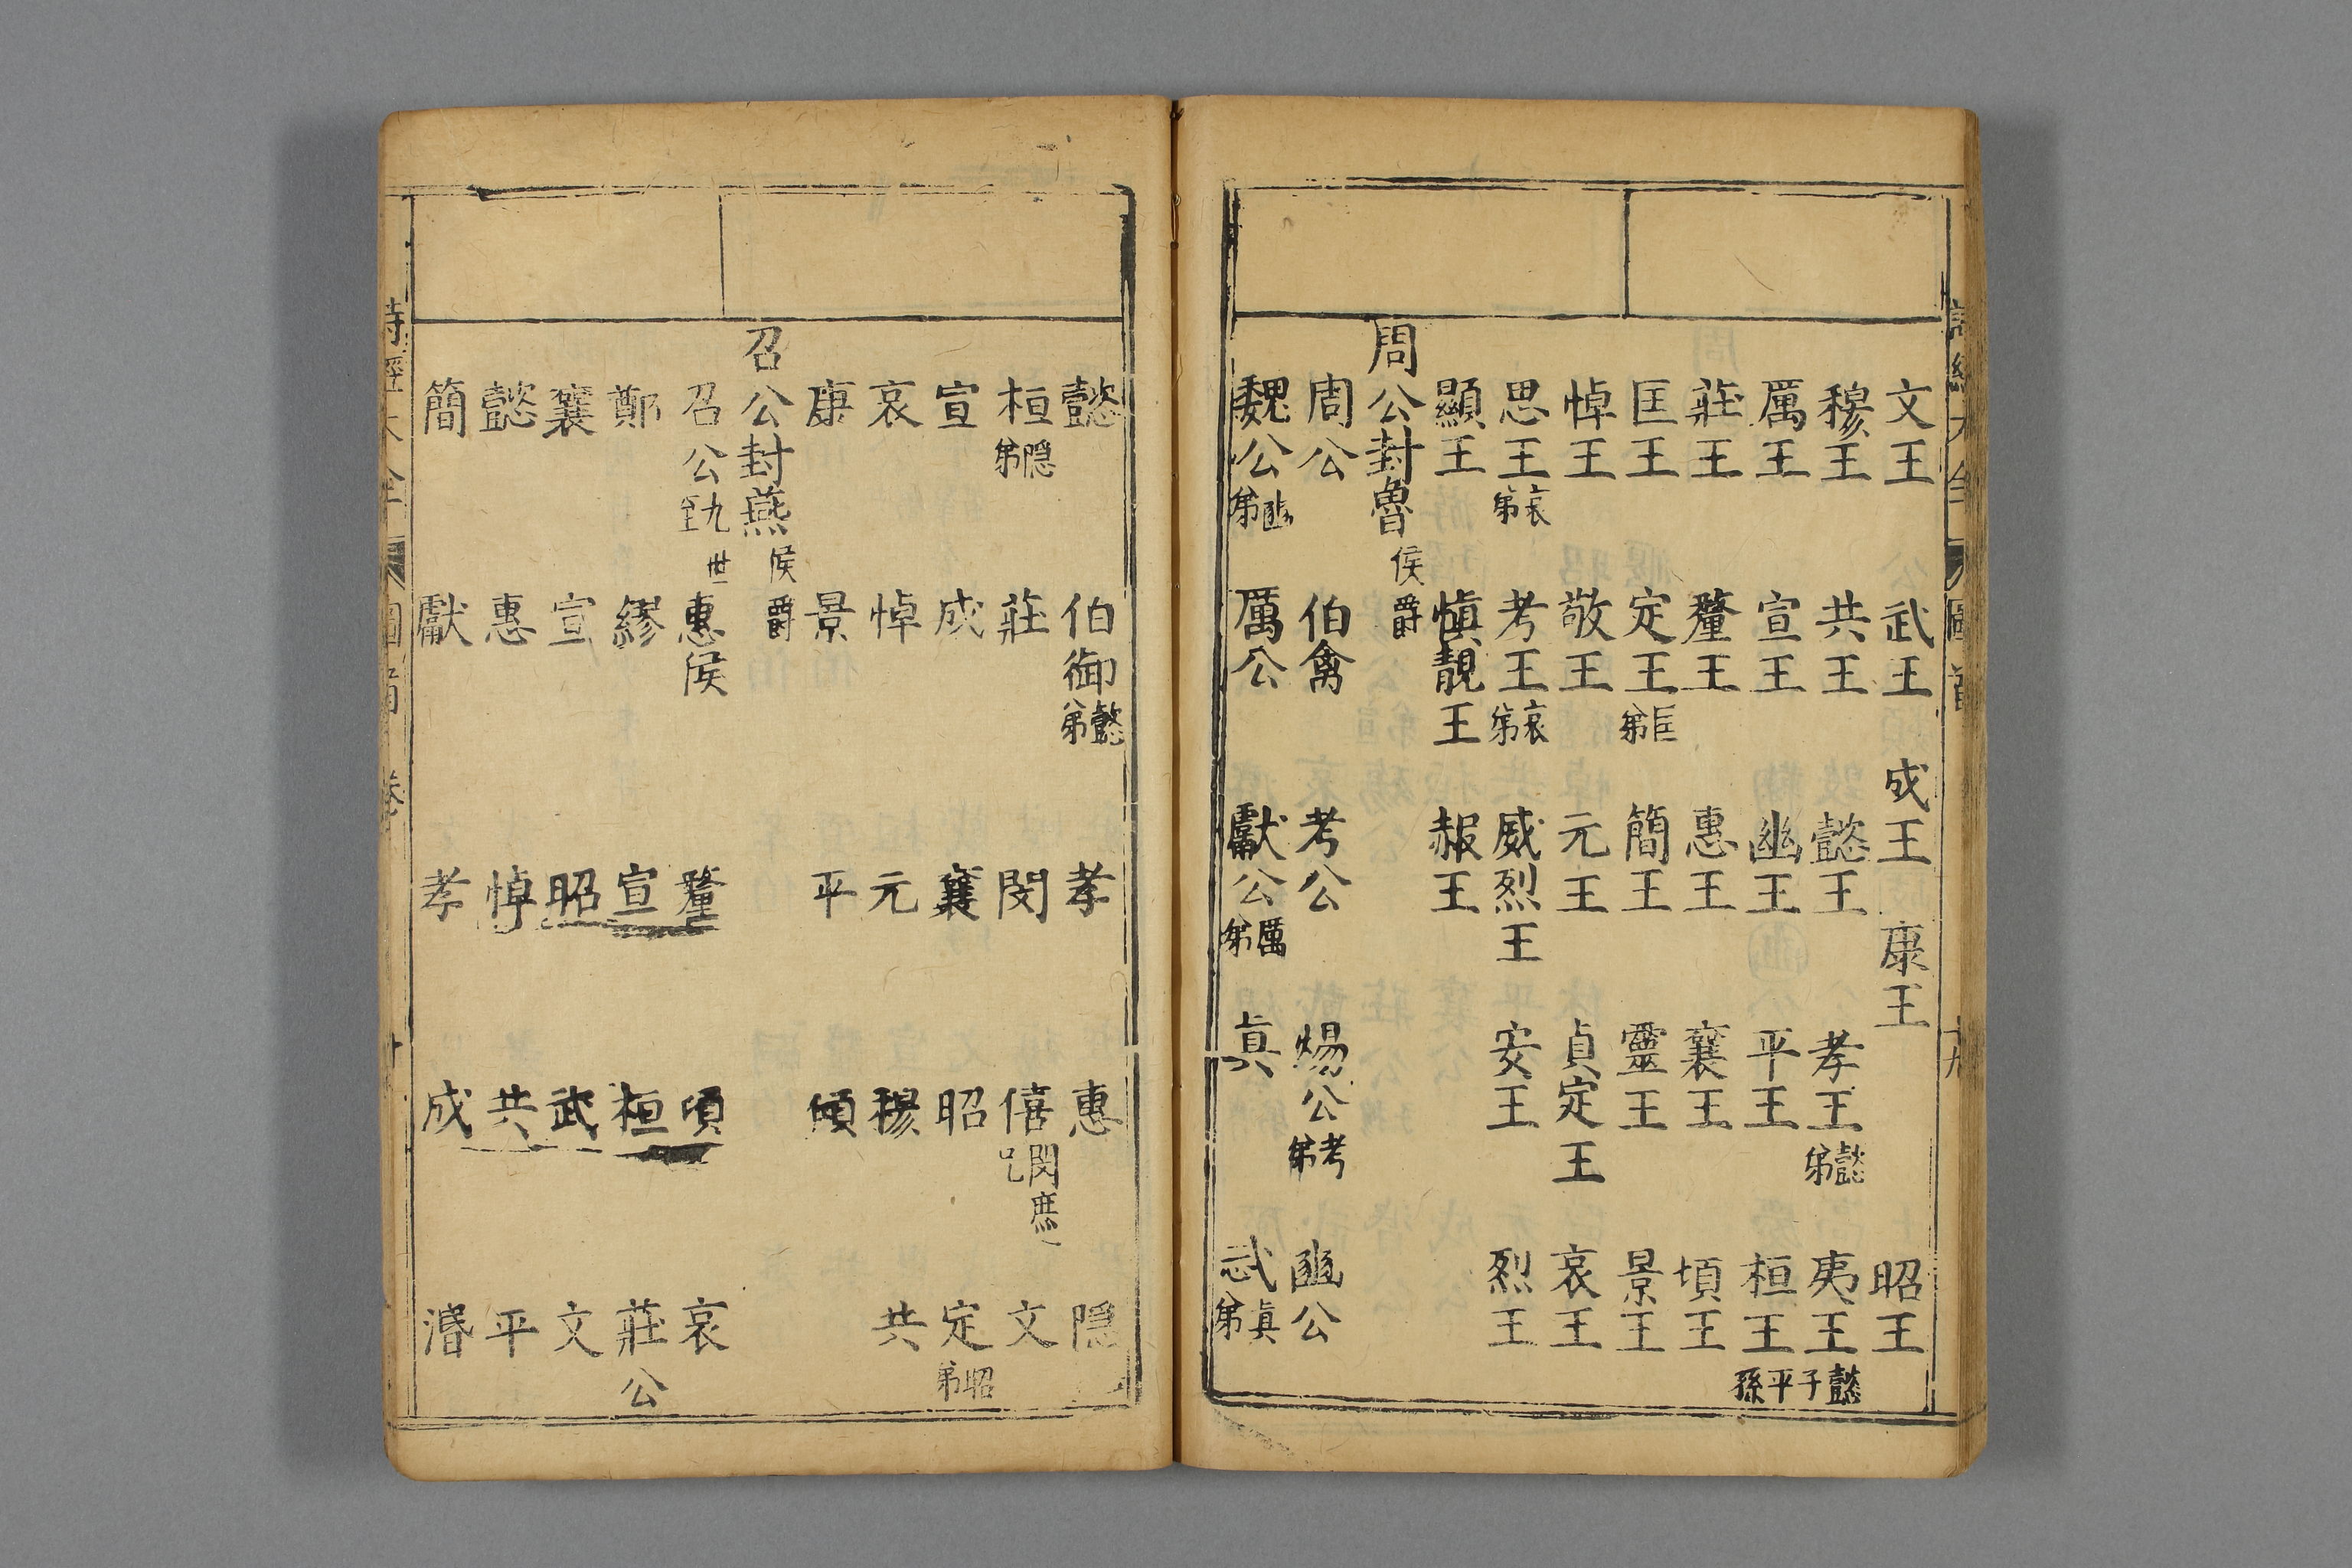 文王 武王 成王 康王 昭王
穆王 共王 懿王 孝王懿弟 夷王懿子
厲王 宣王 幽王 平王 桓王平孫
莊王 釐王 惠王 襄王 頃王
匡王 定王匡弟 簡王 靈王 景王
悼王 敬王 元王 貞定王 哀王
思王哀弟 考王哀弟 威烈王 安王 烈王
顯王 慎靚王 赧王
周公封魯侯爵
周公 伯禽 考公 煬公考弟 幽公
魏公幽弟 厲公 獻公厲弟 真 武真弟
懿 伯御懿弟 孝 惠 隱
桓隱弟 莊 閔 僖閔庶兄 文
宣 成 襄 昭 定昭弟
哀 悼 元 穆 共
康 景 平 傾
召公封燕侯爵
召公九世至 惠侯 釐 頃 哀
鄭 繆 宣 桓 莊公
襄 宣 昭 武 文
懿 惠 悼 共 平
簡 獻 孝 成 湣
詩經大全 圖